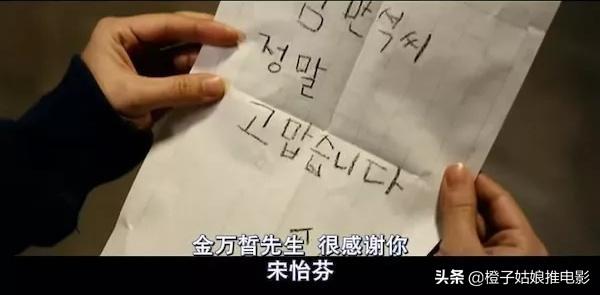 김만석씨
정말
고맙습니다
金万皙先生 很感谢你
宋怡芬
头条 @橙子姑娘推电影